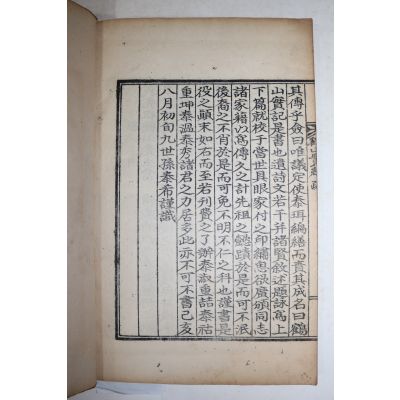 其傳乎僉曰唯議定使泰珥編繕而責其成名曰鶴
山實記是書也遺詩文若干并諸賢敘述題詠爲上
下篇就校于當世具眼家付之印繡思欲廣頒同志
諸家籍以寫傳久之計先祖之懿蹟於是而可不泯
後裔之不肖於是而可免不明不仁之科也謹書是
役之顚末如右而至若刋費之了辦泰淑重喆泰祜
重坤泰溫泰秀諸君之力居多此亦不可不書己亥
八月初旬九世孫泰希謹識